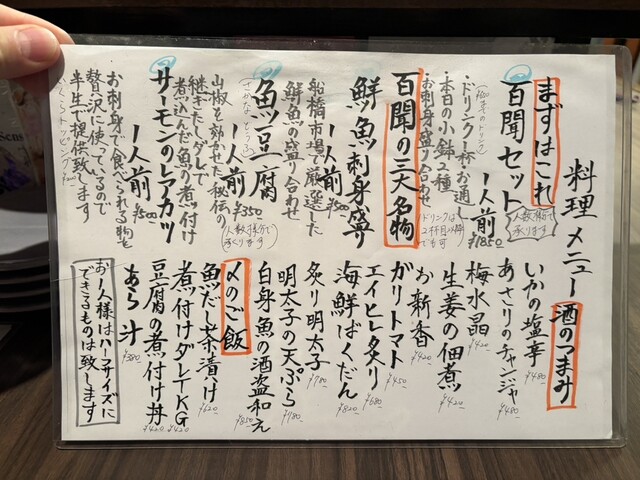 料理メニュー
まずはこれ
百聞セット
1人前 ¥1850
人数様分で
承ります
・ドリンク1杯
・お通し
・本日の小鉢2種
・お刺身盛り合わせ
ドリンクは
2杯目以降
でも可
百聞の三大名物
鮮魚刺身盛り
1人前 ¥1500
船橋市場で厳選した
鮮魚の盛り合わせ
魚豆腐
(さかな とうふ)
1人前 ¥350
人数様分で
承ります
山椒を効かせた秘伝の
継ぎたしダレで
煮込んだ魚の煮付け
サーモンのレアカツ
1人前
お刺身で食べられる物を
贅沢に使っているので
半生で提供致します
酒のつまみ
いかの塩辛 ¥480
あさりのチャンジャ ¥480
梅水晶 ¥420
生姜の佃煮 ¥420
お新香 ¥420
ガリトマト ¥450
エイヒレ炙り ¥680
海鮮ばくだん ¥820
炙り明太子 ¥780
明太子の天ぷら ¥780
白身魚の酒盗和え ¥850
〆のご飯
魚だし茶漬け ¥620
煮付けダレTKG ¥420
豆腐の煮付け丼 ¥420
あら汁 ¥380
お一人様はハーフサイズに
できるものは致します